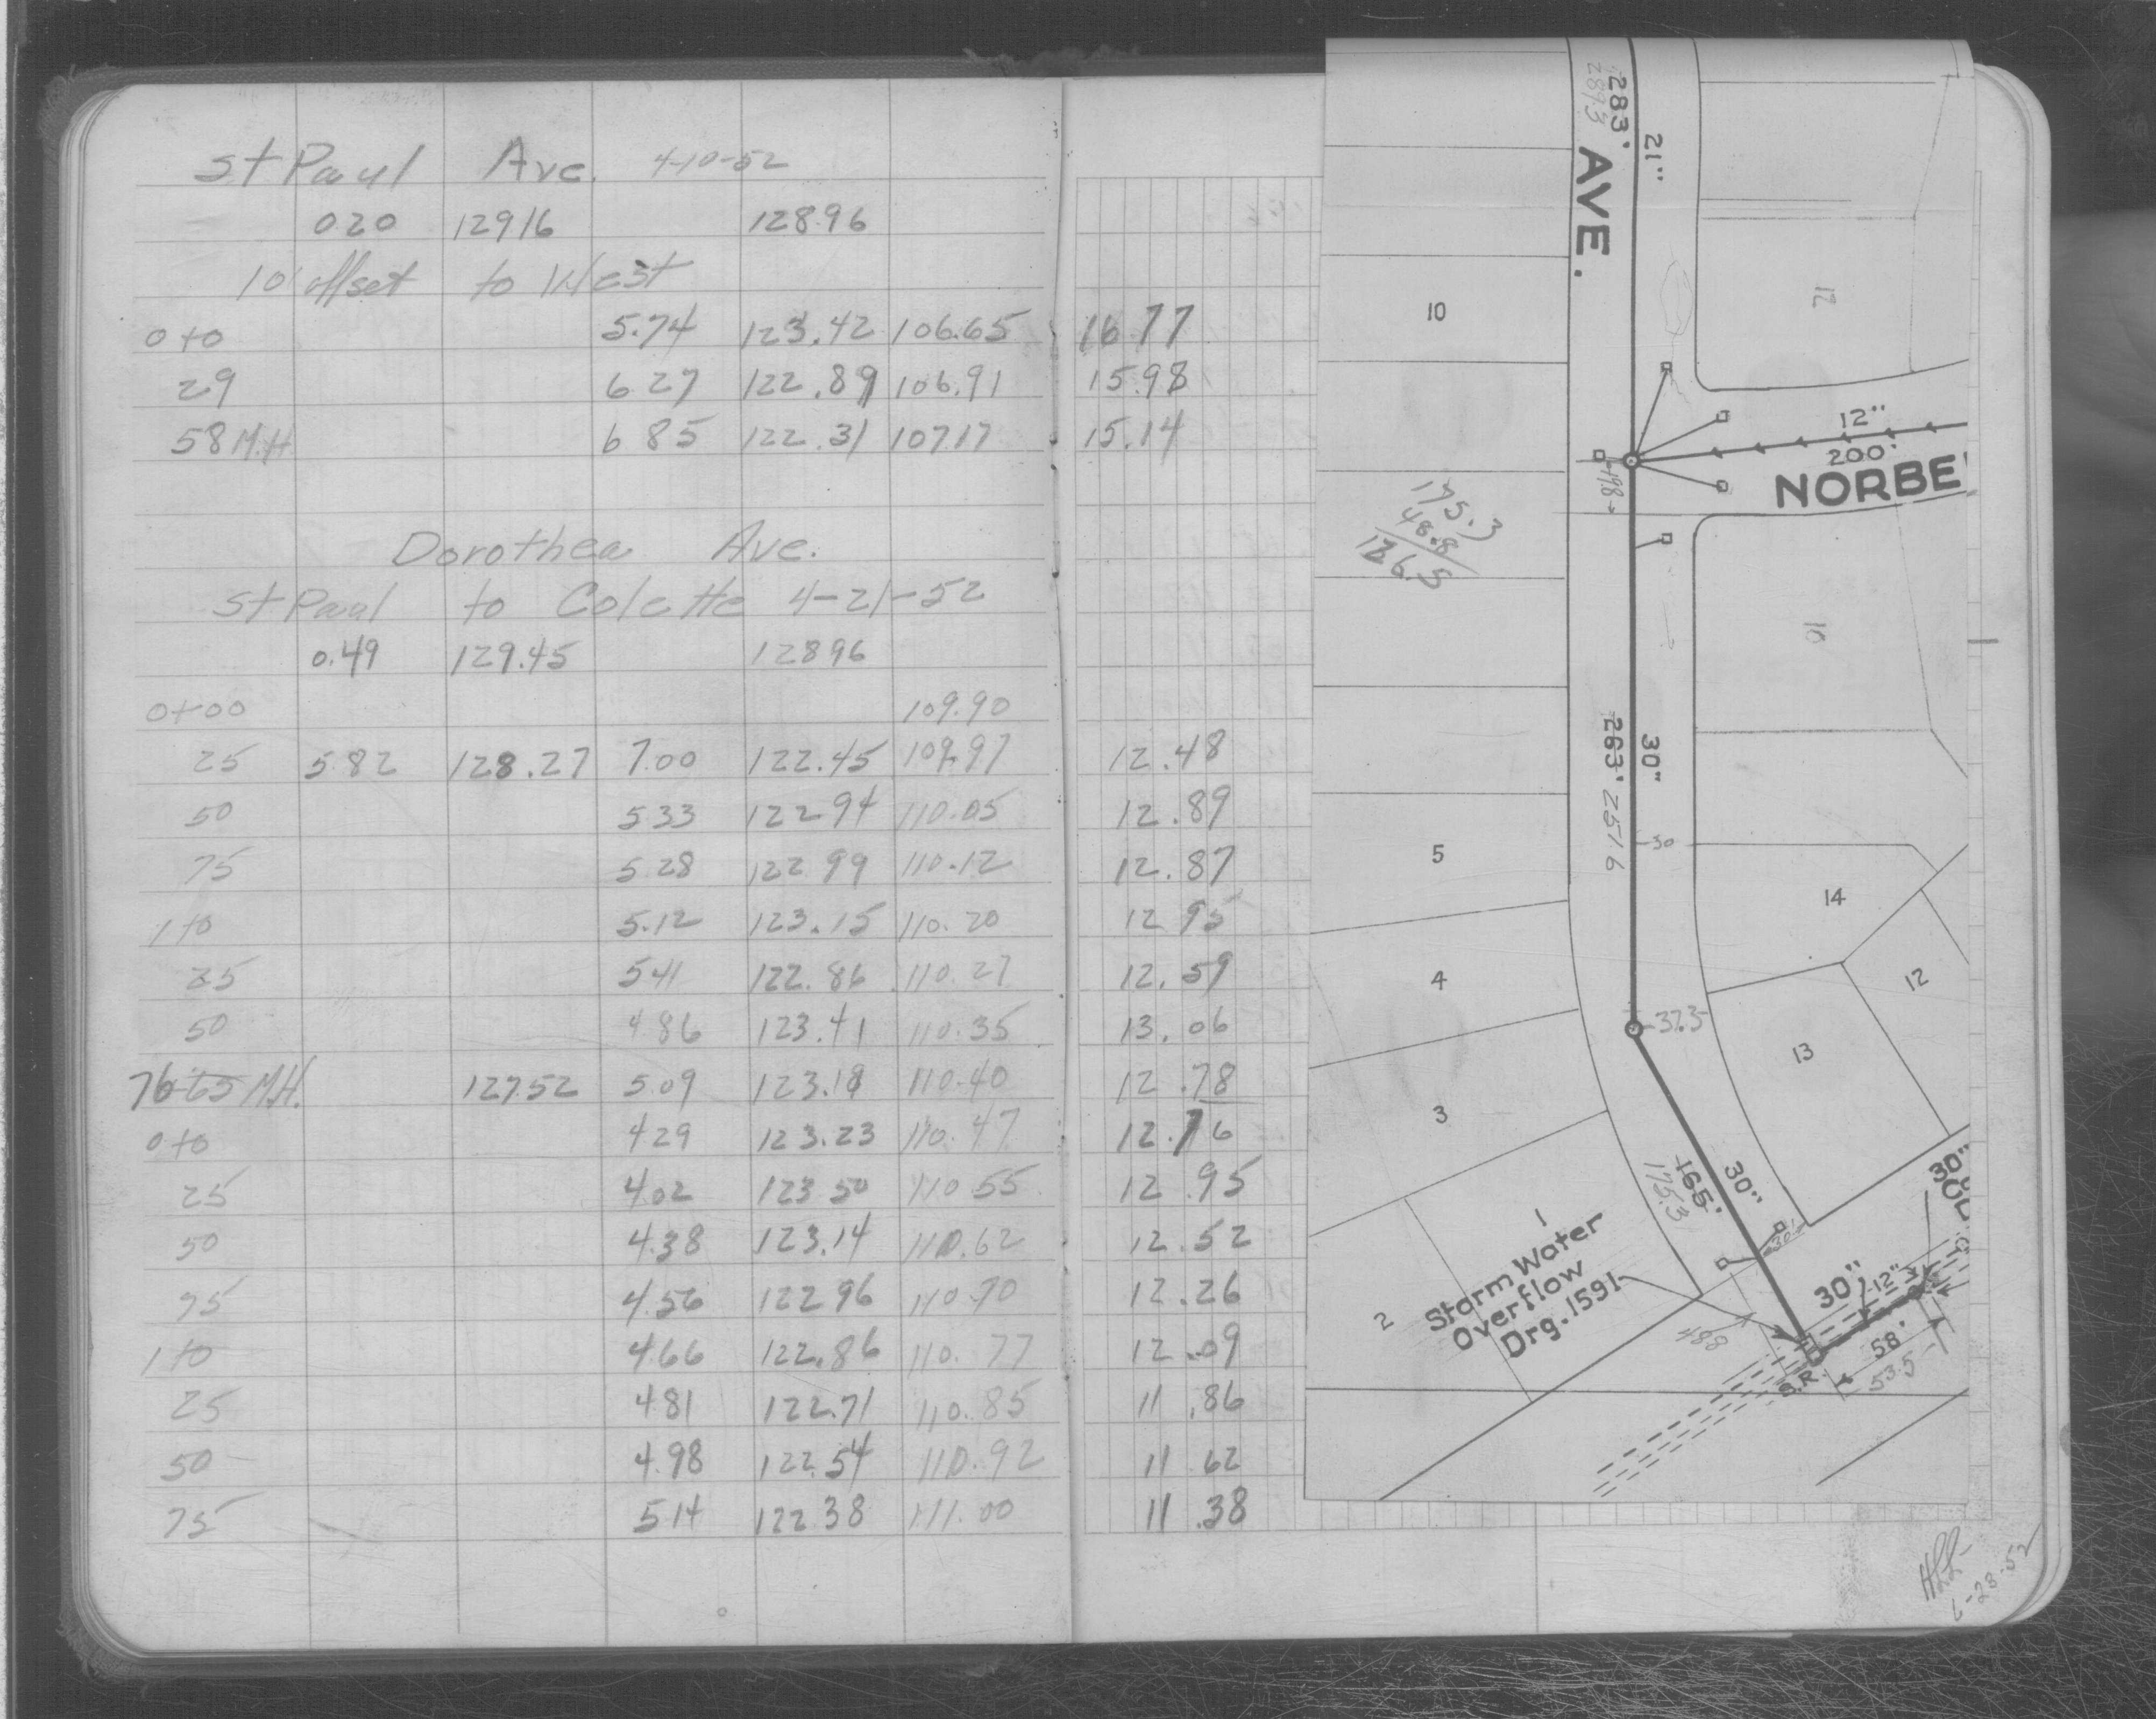 St Paul Ave. 4-10-52
0.20 129.16 128.96
10' offset to West
0+0 5.74 123.42 106.65 16.77
29 6.27 122.89 106.91 15.98
58 M.H. 6.85 122.31 107.17 15.14
Dorothea Ave.
St Paul to Colette 4-21-52
0.49 129.45 128.96
0+00 109.90
25 5.82 128.27 7.00 122.45 109.97 12.48
50 5.33 122.94 110.05 12.89
75 5.28 122.99 110.12 12.87
1+0 5.12 123.15 110.20 12.95
25 5.41 122.86 110.27 12.59
50 4.86 123.41 110.35 13.06
76 65 M.H. 127.52 5.09 123.18 110.40 12.78
0+0 4.29 123.23 110.47 12.76
25 4.02 123.50 110.55 12.95
50 4.38 123.14 110.62 12.52
75 4.56 122.96 110.70 12.26
1+0 4.66 122.86 110.77 12.09
25 4.81 122.71 110.85 11.86
50 4.98 122.54 110.92 11.62
75 5.14 122.38 111.00 11.38
283'
289.3
21"
AVE.
12
10
12"
200'
NORBE
175.3
48.8
126.5
10
263' 257.6
30"
30
5
14
4
12
37.3
13
3
30"
165'
175.3
30'
30"
1
Storm Water
Overflow
Drg. 1591
2
488
30"
12"
58'
53.5
S.R.
6-23-52